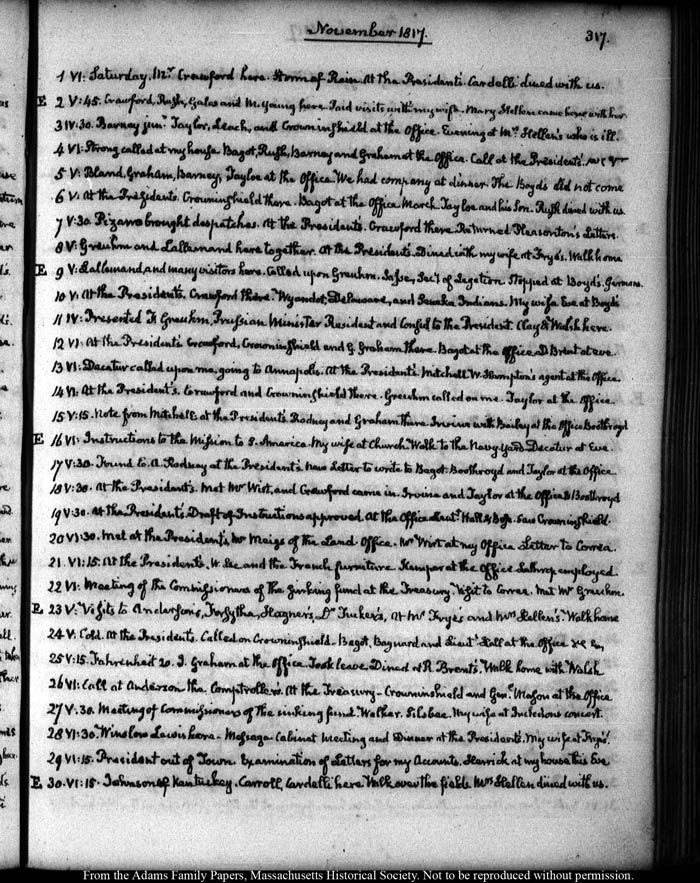 November 1817.
317.
1 VI: Saturday, Mr Crawford here. Storm of Rain. At the Presidents. Cardelli dined with us.
E 2 V:45. Crawford, Rush, Gales and M. Young here. Paid visits with my wife. Mary Hellen came home with her
3 IV:30. Barney junr. Taylor, Leach, and Crowninshield at the Office. Evening at Mrs Hellen's who is ill.
4 VI: Strong called at my house Bagot, Rush, Barney and Graham at the Office. Call at the Presidents.
5 V: Bland, Graham, Barney, Tayloe at the Office We had company at dinner. The Boyds did not come
6 V: At the Presidents. Crowninshield there. Bagot at the Office. March. Tayloe and his Son. Rush dined with us
7 V:30 Pizarro brought despatches. At the Presidents. Crawford there. Returned Pleasonton's Letters.
8 V: Greuhm and Lallemand here together. At the Presidents. Dined with my wife at Frye's. Walk home
E 9 V: Lallemand, and many visitors here. Called upon Greuhm. Secy of Legation. Stopped at Boyd's. Germans.
10 V: At the Presidents. Crawford there. Wyandot, Delaware, and Seneka Indians. My wife Eve at Boyds
11 IV: Presented F. Greuhm, Prussian Minister Resident and Consul to the President. Clay & Walsh here.
12 VI: At the Presidents Crawford, Crowninshield and G. Graham there. Bagot at the Office. D Brent at eve.
13 VI: Decatur called upon me, going to Annapolis. At the Presidents. Mitchell W. Hampton's agent at the Office
14 VI: At the President's. Crawford and Crowninshield there. Greuhm called on me. Taylor at the Office
15 V:15. Note from Mitchell at the Presidents Rodney and Graham there. Irvine with Bailey at the Office Boothroyd
E 16 VI: Instructions to the Mission to S. America. My wife at Church. Walk to the Navy Yard Decatur at Eve.
17 V:30. Found C. A. Rodney at the President's. New Letter to write to Bagot. Boothroyd and Taylor at the Office
18 V:30. At the Presidents. Met Mr Wirt, and Crawford came in. Irvine and Taylor at the Office & Boothroyd
19 V:30. At the Presidents. Draft of Instructions approved. At the Office Lieut. Hall & Saw Crowninshield.
20 VI:30. Met at the Presidents, Mr Meigs of the Land Office. Mr Wirt at my Office Letter to Correa.
21. VI:15. At the Presidents. W. Lee and the French furniture. at the Office Lathrop employed
22 VI: Meeting of the Commissioners of the sinking fund at the Treasury Visit to Correa. Met Mr Greuhm.
E 23 V: Visits to Anderson's, Forsytha, Hagner's, Dr Tucker's, at Mr Frye's and Mrs Hellen's. Walk home
24 V: Cold. At the Presidents. Called on Crowninshield. Bagot, Baynard and Lieut. Hall at the Office
25 V:15. Fahrenheit 20. J. Graham at the Office. Took leave. Dined at R. Brent's. Walk home with Walsh
26 VI: Call at Anderson the Comptrollers. At the Treasury. Crowninshield and Genl. Mason at the Office
27 V:30. Meeting of Commissioners of the sinking fund. Walker. Silsbee. My wife at Incledons concert.
28 VI:30. Winslow Lewis here. Message. Cabinet meeting and Dinner at the Presidents. My wife at Fryes.
29 VI:15. President out of Town. Examination of Letters for my Accounts. Herrick at my house this Eve
E 30. VI:15. Johnson of Kentuckey. Carroll, Cardelli here Walk over the fields Mrs Hellen dined with us.
From the Adams Family Papers, Massachusetts Historical Society. Not to be reproduced without permission.